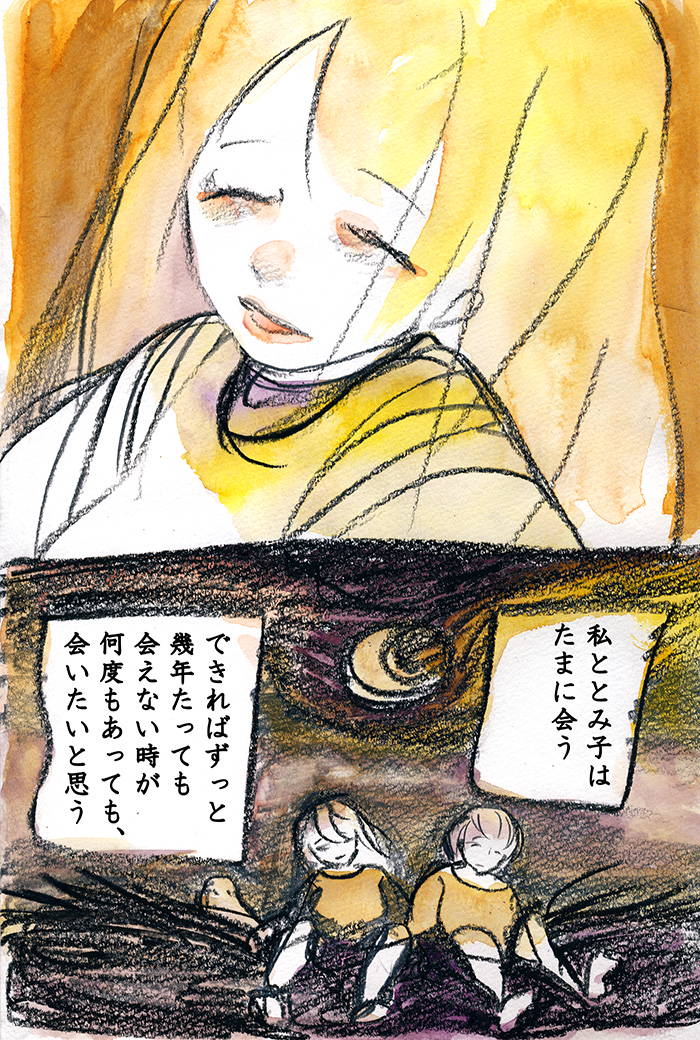 私ととみ子は
たまに会う
できればずっと
幾年たっても
会えない時が
何度もあっても、
会いたいと思う